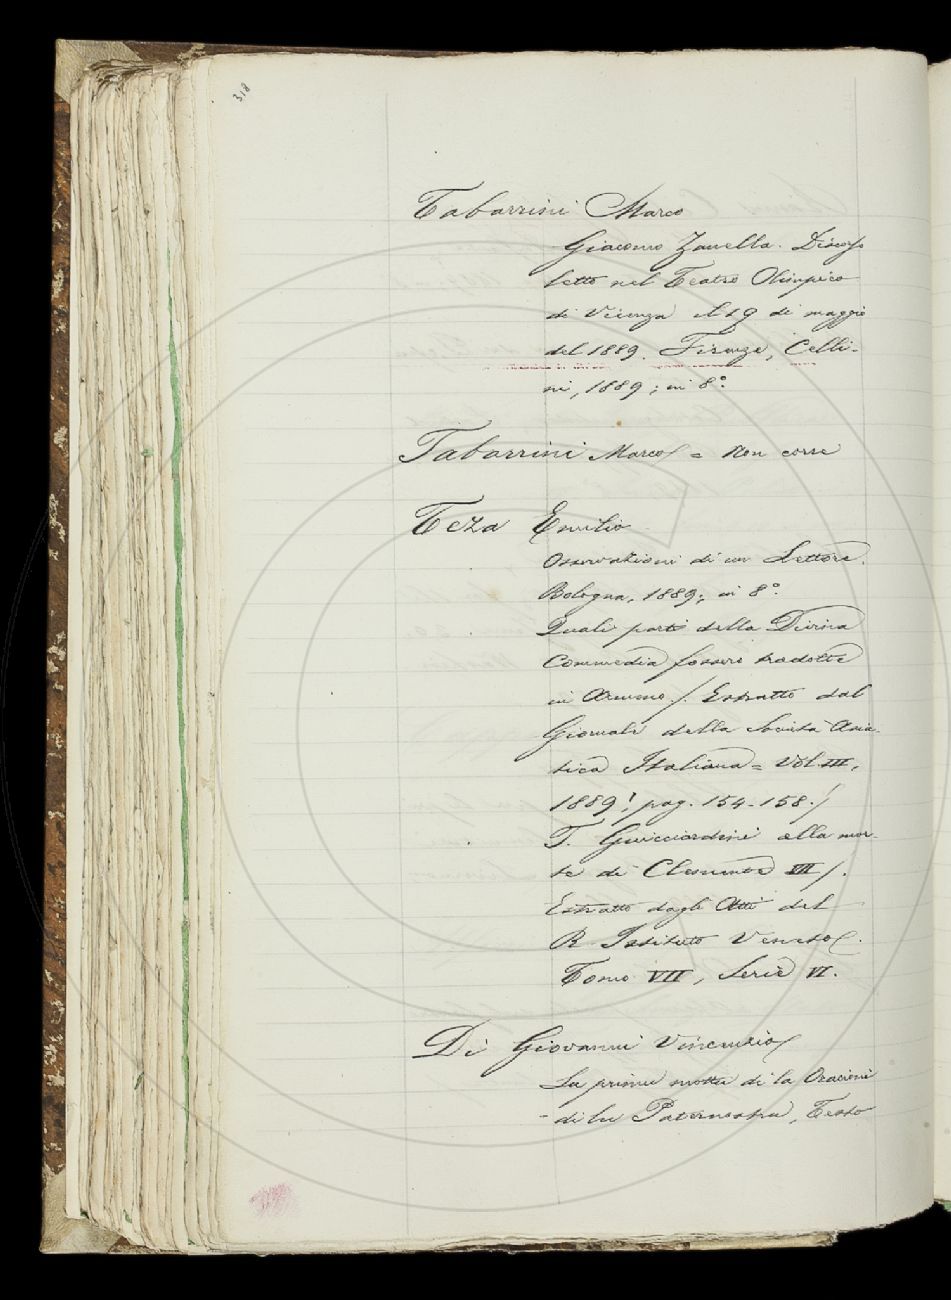 318
Tabarrini Marco
Giacomo Zanella. Discorso
letto nel Teatro Olimpico
di Vicenza il 19 di maggio
del 1889. Firenze, Celli-
ni, 1889; in 8°.
Tabarrini Marco = Non corre
Teza Emilio
Osservazioni di un Lettore.
Bologna, 1889; in 8°.
Quali parti della Divina
Commedia fossero tradotte
in Armeno /. Estratto dal
Giornale della Società Asia-
tica Italiana = Vol. III,
1889, pag. 154-158./
F. Guicciardini alla mor-
te di Clemente VII /.
Estratto dagli Atti del
R. Istituto Veneto.
Tomo VII, Serie VI.
Di Giovanni Vincenzio
La primu motta di la Oracioni
- di lu Paternostru, Testo